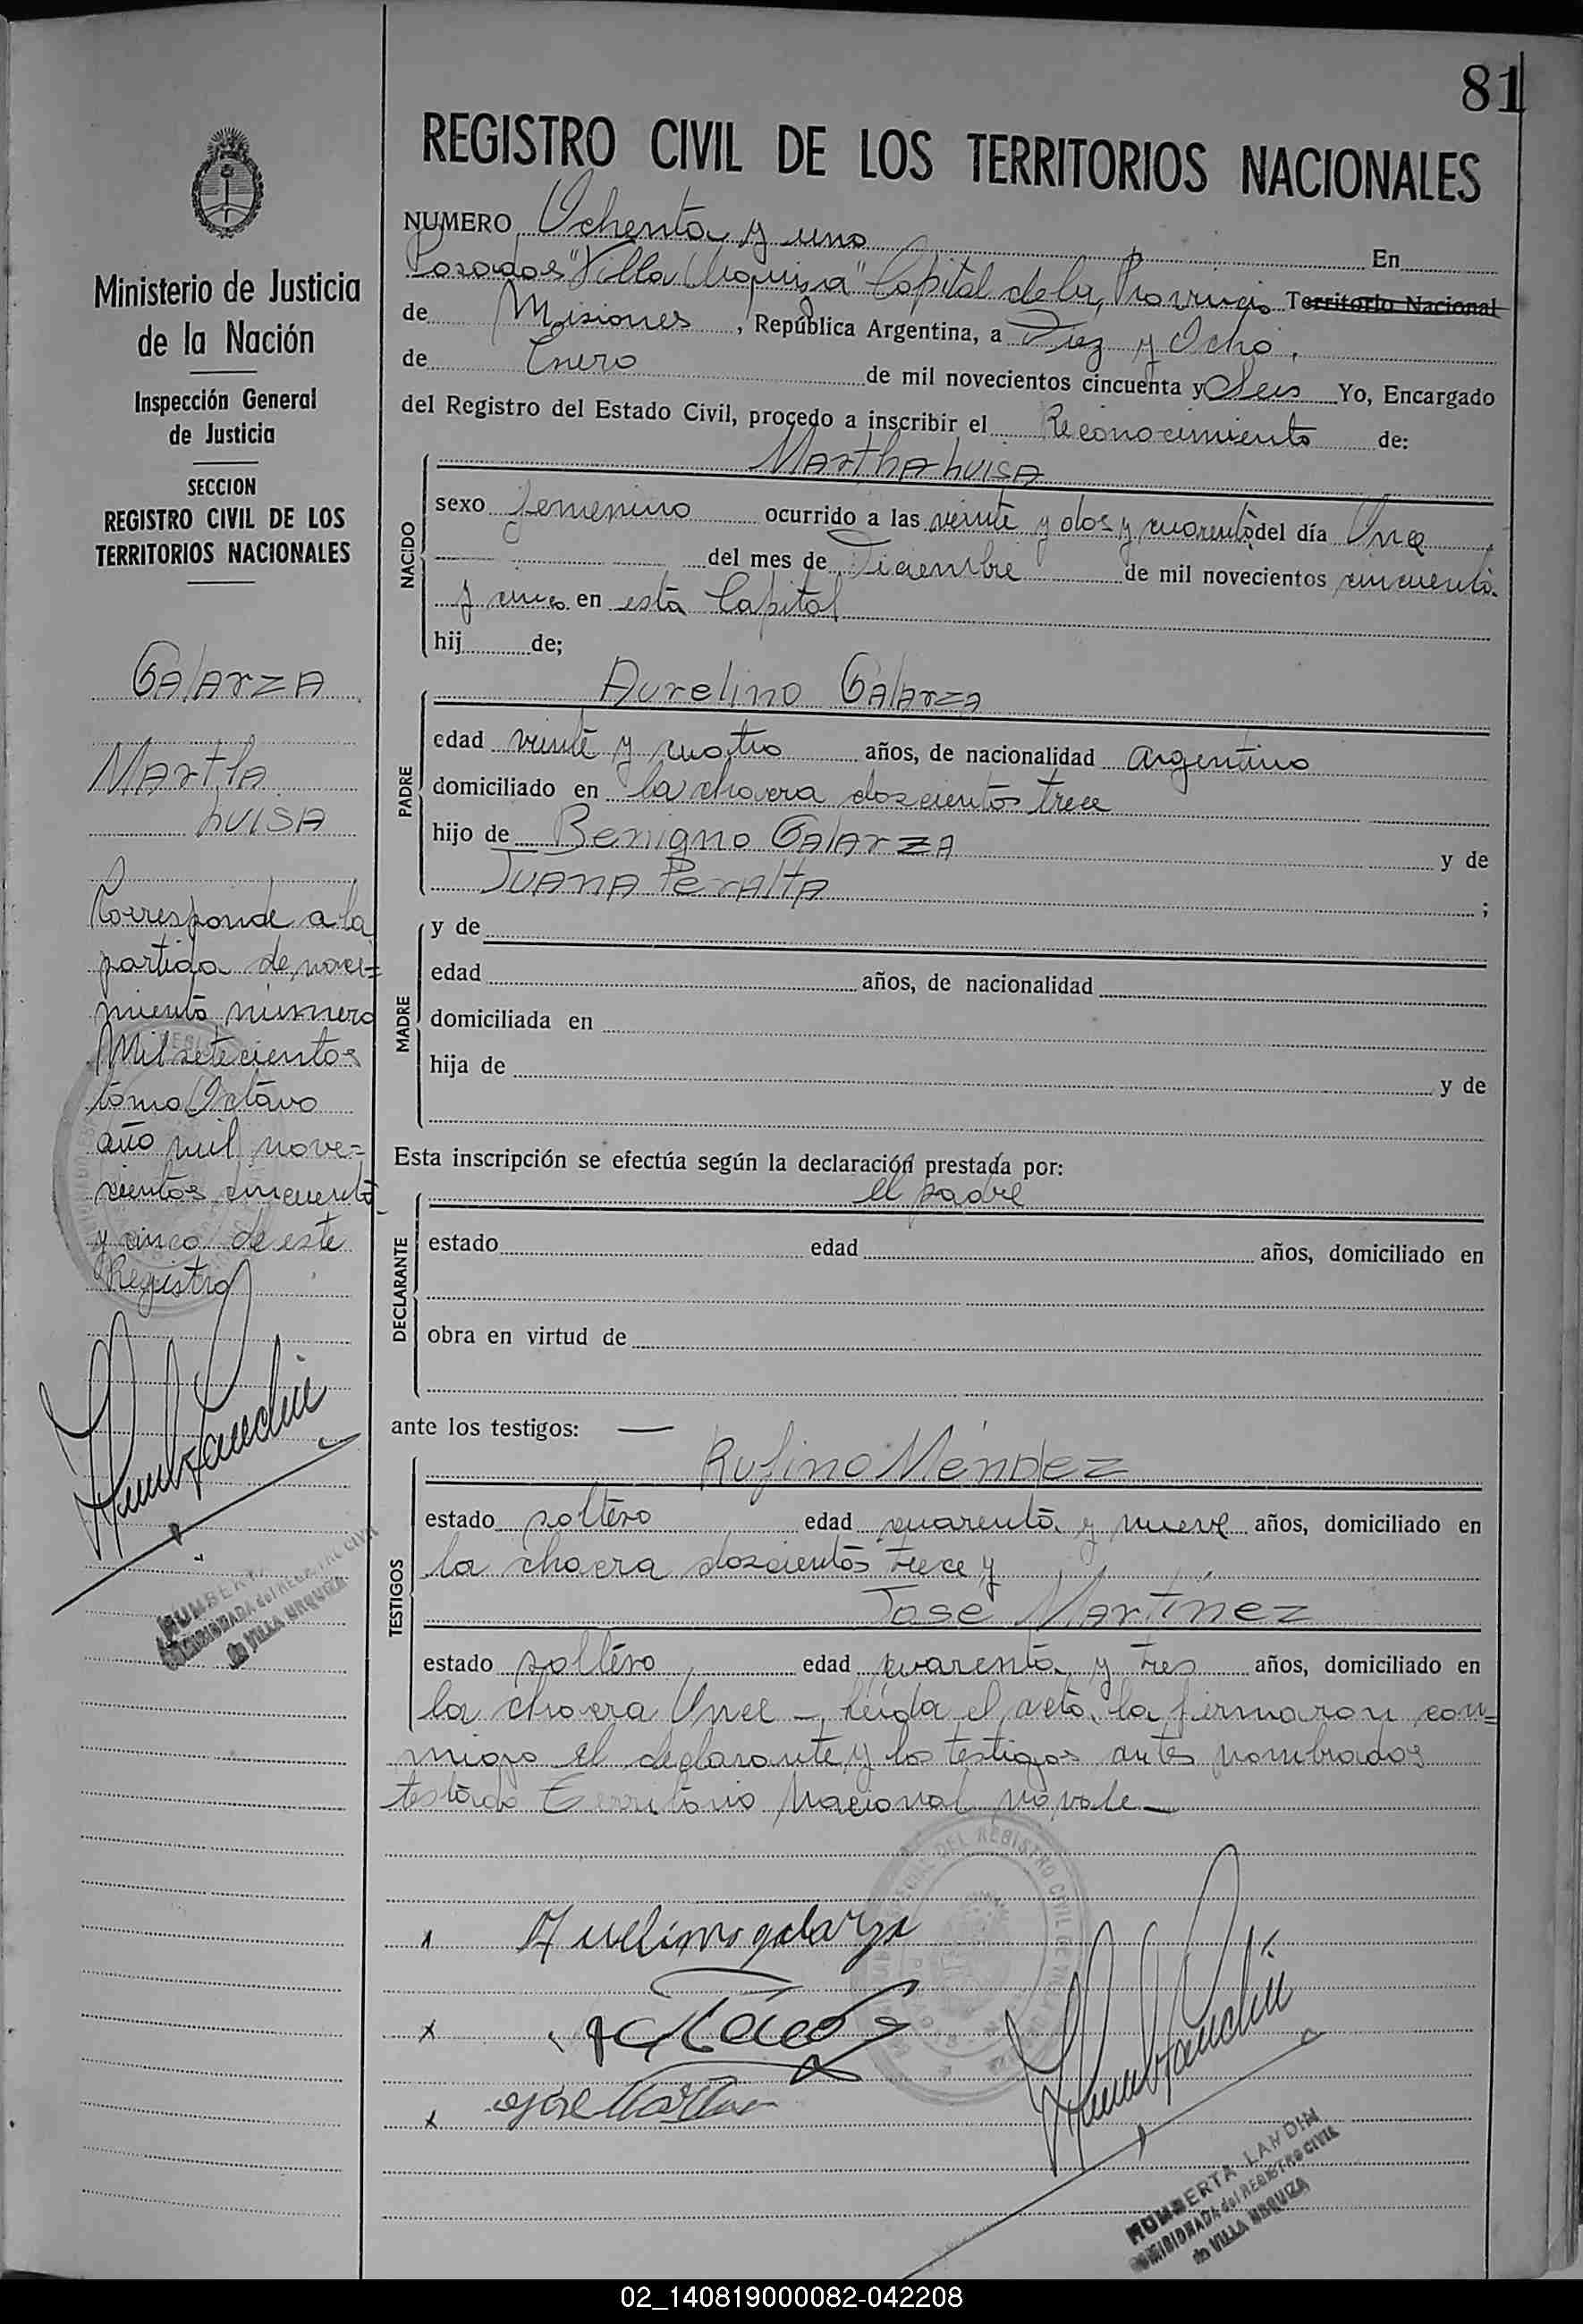 81
REGISTRO CIVIL DE LOS TERRITORIOS NACIONALES
NUMERO Ochenta y uno En
Posadas "Villa Urquiza" Capital de la Provincia Territorio Nacional
de Misiones, República Argentina, a Diez y Ocho,
de Enero de mil novecientos cincuenta y Seis Yo, Encargado
del Registro del Estado Civil, procedo a inscribir el Reconocimiento de:
NACIDO
Martha Luisa
sexo femenino ocurrido a las veinte y dos y cuarenta del día Once
del mes de Diciembre de mil novecientos cincuenta
y cinco en esta Capital
hij de;
PADRE
Aurelino Galarza
edad veinte y cuatro años, de nacionalidad argentino
domiciliado en la chacra doscientos trece
hijo de Benigno Galarza y de
Juana Peralta ;
MADRE
y de
edad años, de nacionalidad
domiciliada en
hija de y de
Esta inscripción se efectúa según la declaración prestada por:
DECLARANTE
el padre
estado edad años, domiciliado en
obra en virtud de
ante los testigos: —
TESTIGOS
Rufino Méndez
estado soltero edad cuarenta y nueve años, domiciliado en
la chacra doscientos trece y
José Martínez
estado soltero, edad cuarenta y tres años, domiciliado en
la chacra Once -, Leída el acta, la firmaron con=
migo el declarante y los testigos antes nombrados
testado Territorio Nacional no vale -
Aurelino galarza
José Martinez
HUMBERTA LANDIN
COMISIONADA del REGISTRO CIVIL
de VILLA URQUIZA
Ministerio de Justicia
de la Nación
Inspección General
de Justicia
SECCION
REGISTRO CIVIL DE LOS
TERRITORIOS NACIONALES
Galarza
Martha
Luisa
Corresponde a la
partida de naci=
miento número
Mil setecientos
tomo Octavo
año mil nove=
cientos cincuenta
y cinco de este
Registro
HUMBERTA
COMISIONADA del REGISTRO CIVIL
de VILLA URQUIZA
02_140819000082-042208